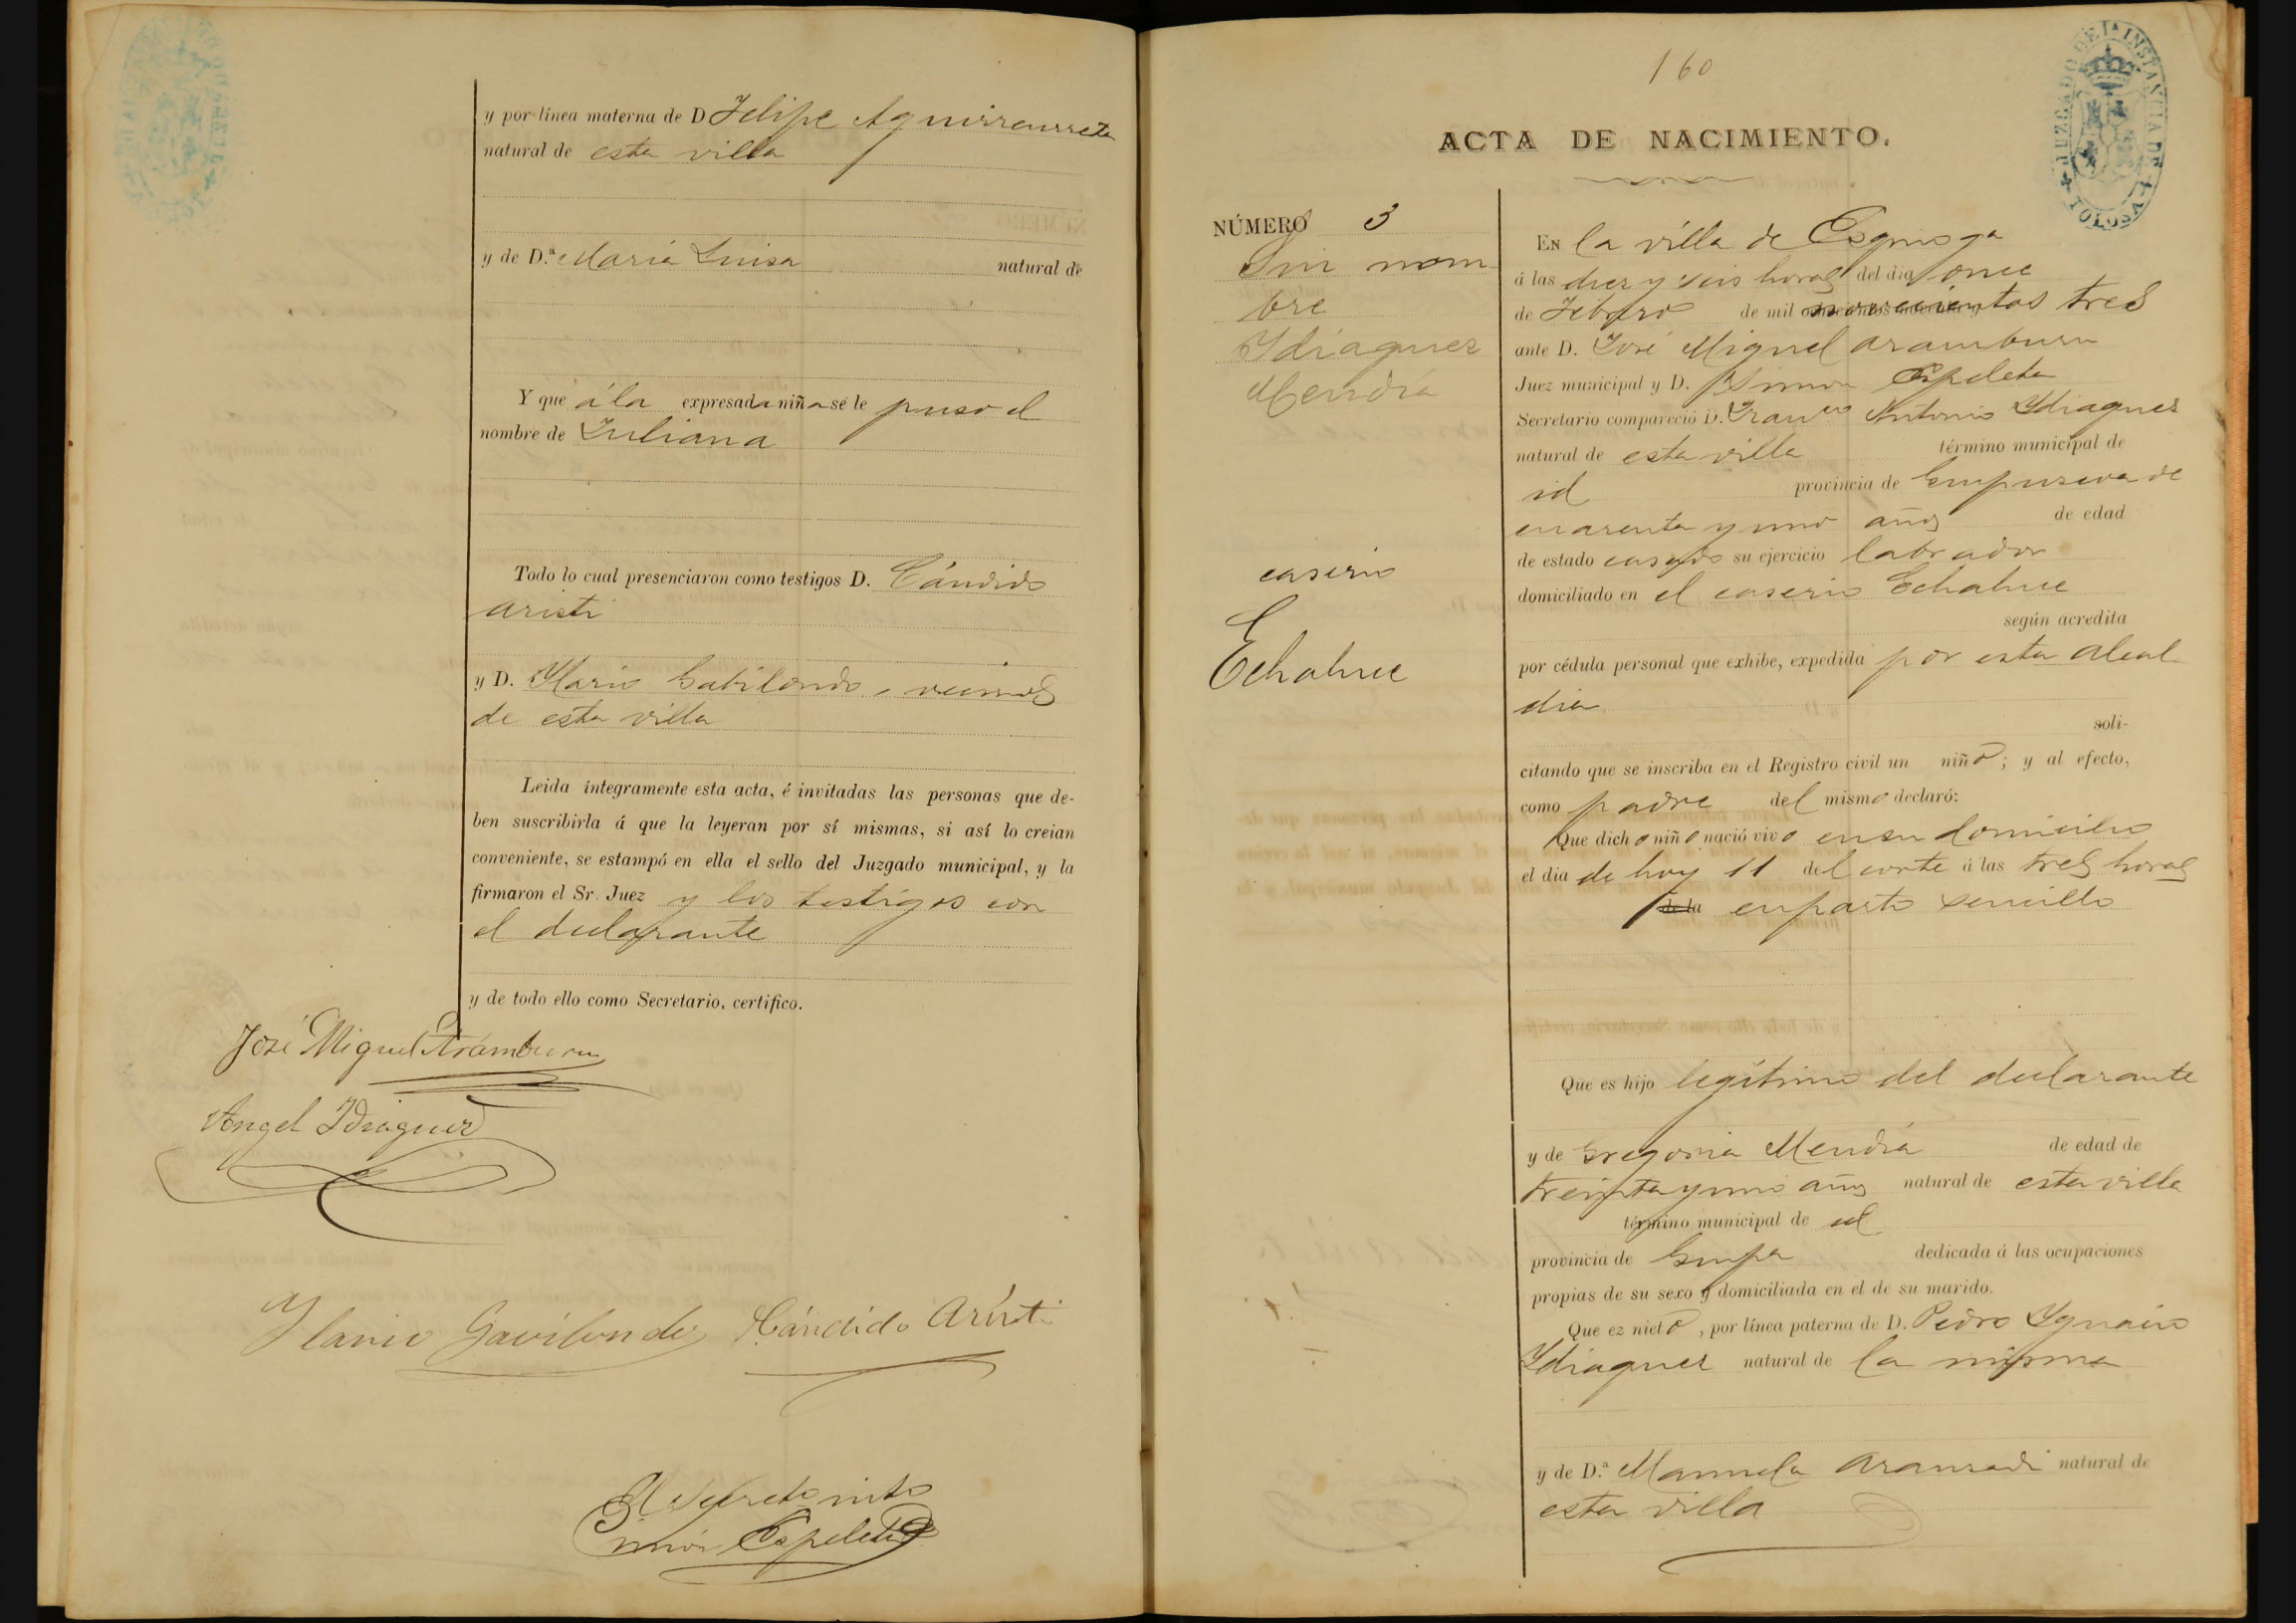 y por línea materna de D Felipe Aguirreurreta
natural de esta villa
y de D.ª Maria Luisa natural de
Y que á la expresada niña se le puso el
nombre de Juliana
Todo lo cual presenciaron como testigos D. Cándido
Aristi
y D. Ylario Gabilondo, vecinos
de esta villa
Leida íntegramente esta acta, é invitadas las personas que de-
ben suscribirla á que la leyeran por sí mismas, si así lo creian
conveniente, se estampó en ella el sello del Juzgado municipal, y la
firmaron el Sr. Juez y los testigos con
el declarante
y de todo ello como Secretario, certifico.
José Miguel Aramburu
Angel Ydiaquez
Ylario Gavilondo Cándido Aristi
El Secretario
Simón Espeleta
160
JUZGADO DE 1ª INSTANCIA DE TOLOSA
ACTA DE NACIMIENTO.
NÚMERO 3
Sin nom-
bre
Ydiaquez
Mendía
caserio
Echahue
En la villa de Ezquioga
á las diez y seis horas del dia once
de Febrero de mil novecientos tres
ante D. José Miguel Aramburu
Juez municipal y D. Simon Espeleta
Secretario compareció D. Franco Antonio Ydiaquez
natural de esta villa término municipal de
id provincia de Guipuzcoa de
cuarenta y uno años de edad
de estado casado su ejercicio labrador
domiciliado en el caserio Echahue
según acredita
por cédula personal que exhibe, expedida por esta Alcal-
dia
soli-
citando que se inscriba en el Registro civil un niño; y al efecto,
como padre del mismo declaró:
Que dicho niño nació vivo en su domicilio
el dia de hoy 11 del corte á las tres horas
de la en parto sencillo
Que es hijo legítimo del declarante
y de Gregoria Mendía de edad de
treinta y uno años natural de esta villa
término municipal de id
provincia de Guipa dedicada á las ocupaciones
propias de su sexo y domiciliada en el de su marido.
Que ez nieto, por línea paterna de D. Pedro Ygnacio
Ydiaquez natural de la misma
y de D.ª Manuela Aranzadi natural de
esta villa